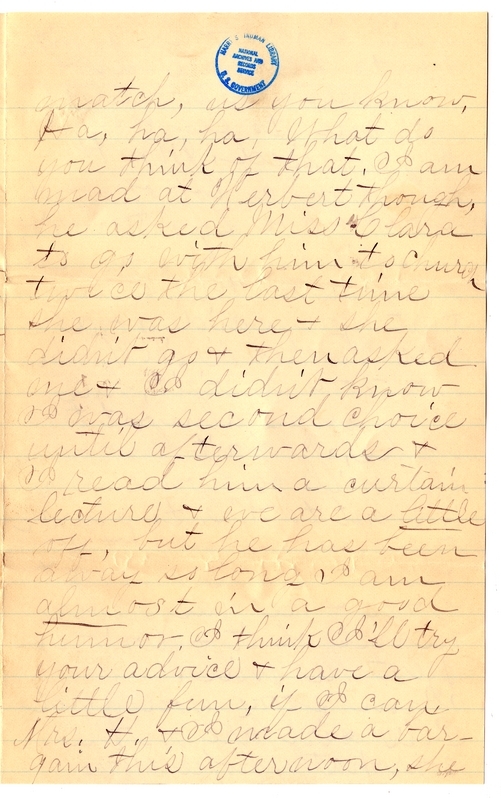 HARRY S. TRUMAN LIBRARY
NATIONAL
ARCHIVES AND
RECORDS
SERVICE
U.S. GOVERNMENT
match, as you know,
Ha, ha, ha, What do
you think of that. I am
mad at Herbert though,
he asked Miss Clara
to go with him to Church
twice the last time
she was here & she
didn't go & then asked
me & I didn't know
I was second choice
until afterwards &
I read him a curtain
lecture & we are a little
off, but he has been
away so long, I am
almost in a good
humor, I think I'll try
your advice & have a
little fun, if I can.
Mrs. H. & I made a bar-
gain this afternoon, she